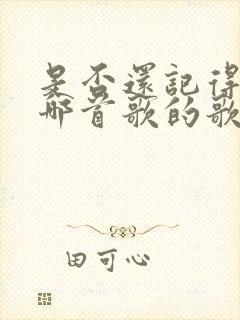 是否還記得
那首歌的歌
田可心